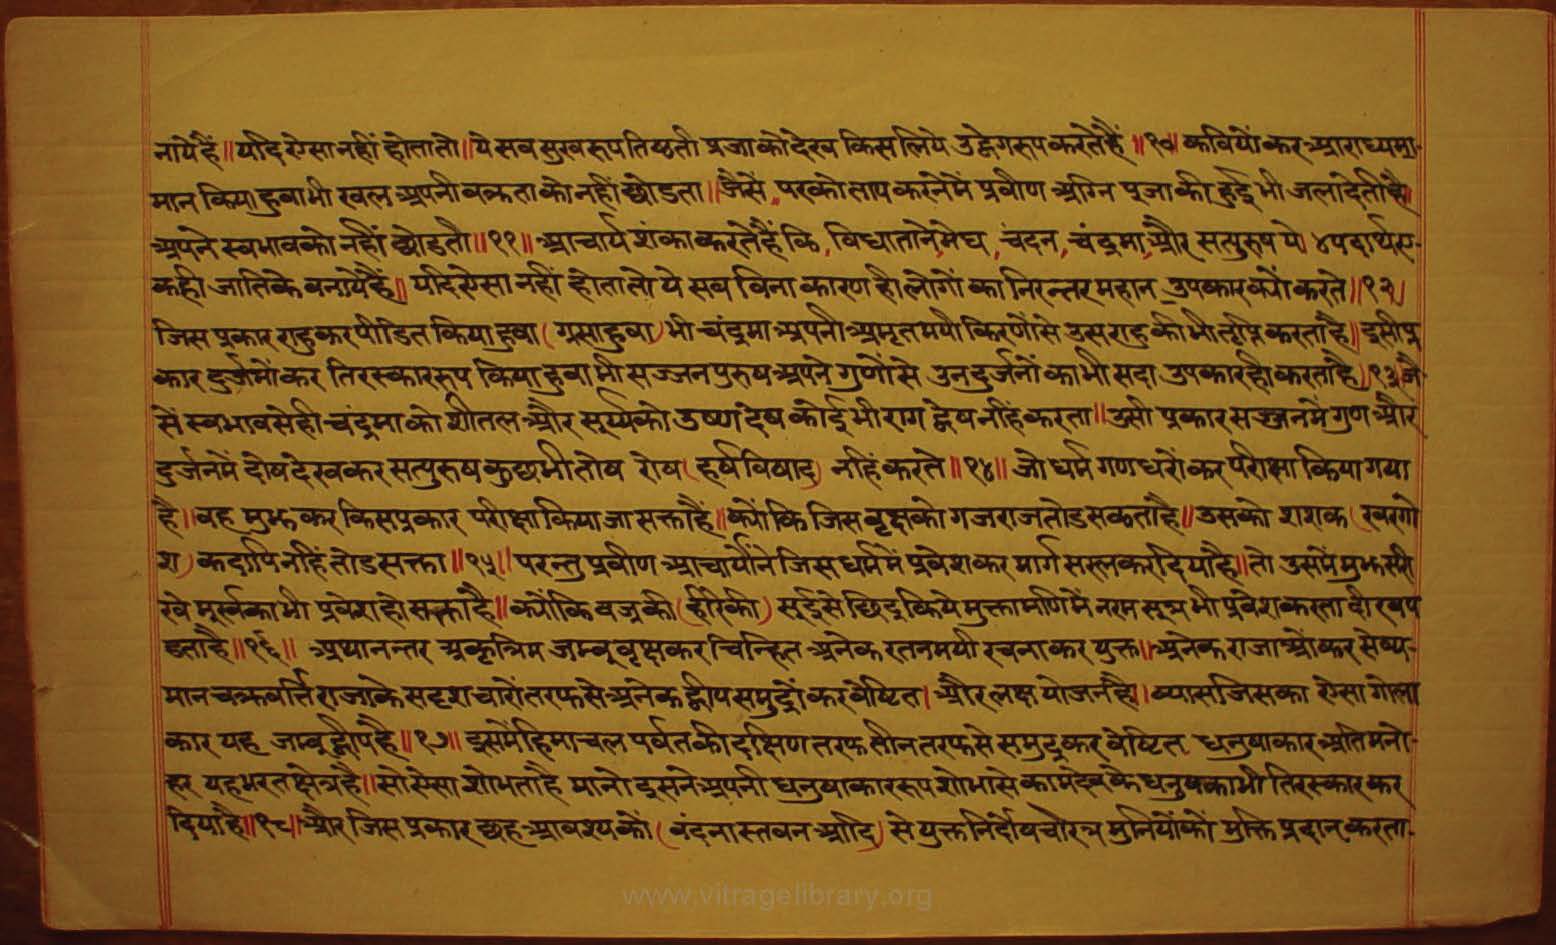 नाये हैं॥ यदि ऐसा नहीं होता तो॥ ये सब सुखरूप तिष्ठती प्रजा को देख किस लिये उद्वेगरूप करते हैं॥१०॥ कवियों कर आराध्यमा-
मान किया हुवा भी खल अपनी वक्रता को नहीं छोडता॥ जैसें, पर को ताप करने में प्रवीण अग्नि पूजा की हुई भी जला देती है॥
अपने स्वभाव को नहीं छोडती॥११॥ आचार्य शंका करते हैं कि, विधाता ने मेघ, चंदन, चंद्रमा, और सत्पुरुष ये ४ पदार्थ ए-
क ही जाति के बनाये हैं॥ यदि ऐसा नहीं होता तो ये सब विना कारण ही लोगों का निरन्तर महान उपकार क्यों करते॥१२॥
जिस प्रकार राहु कर पीडित किया हुवा (ग्रसा हुवा) भी चंद्रमा अपनी अमृतमयी किरणों से उस राहु की भी तृप्ति करता है॥ इसी प्र
कार दुर्जनों कर तिरस्काररूप किया हुवा भी सज्जन पुरुष अपने गुणों से उन दुर्जनों का भी सदा उपकार ही करता है॥१३॥ जै-
सें स्वभाव से ही चंद्रमा को शीतल और सूर्य्य को उष्ण देष कोई भी राग द्वेष नहिं करता॥ उसी प्रकार सज्जन में गुण और
दुर्जन में दोष देखकर सत्पुरुष कुछ भी तोष रोष (हर्ष विषाद) नहिं करते॥१४॥ जो धर्म गणधरों कर परीक्षा किया गया
है॥ वह मुझ कर किस प्रकार परीक्षा किया जा सक्ता है॥ क्यों कि जिस वृक्ष को गजराज तोड सकता है॥ उसको शशक (खरगो
श) कदापि नहिं तोड सक्ता॥१५॥ परन्तु प्रवीण आचार्यों ने जिस धर्म में प्रवेश कर मार्ग सरल कर दिया है॥ तो उसमें मुझ सरी
खे मूर्ख का भी प्रवेश हो सक्ता है॥ क्यों कि वज्र की (हीरे की) सूई से छिद्र किये मुक्तामणि में नरम सूत्र भी प्रवेश करता दीख प
डता है॥१६॥ अथानन्तर अकृत्रिम जम्बूवृक्ष कर चिन्हित अनेक रतनमयी रचना कर युक्त॥ अनेक राजाओं कर सेव्य-
मान चक्रवर्त्ति राजा के सदृश चारों तरफ से अनेक द्वीप समुद्रों कर वेष्टित। और लक्ष योजन है॥ व्यास जिसका ऐसा गोला
कार यह जाम्बूद्वीप है॥१७॥ इसमें हिमाचल पर्वत की दक्षिण तरफ तीन तरफ से समुद्र कर वेष्टित धनुषाकार अति मनो-
हर यह भरत क्षेत्र है॥ सो ऐसा शोभता है मानो इसने अपनी धनुषाकाररूप शोभा से कामदेव के धनुष का भी तिरस्कार कर
दिया है॥१८॥ और जिस प्रकार छह आवश्यकों (वंदना स्तवन आदि) से युक्त निर्दोष चारित्र मुनियों को मुक्ति प्रदान करता-
www.vitragelibrary.org